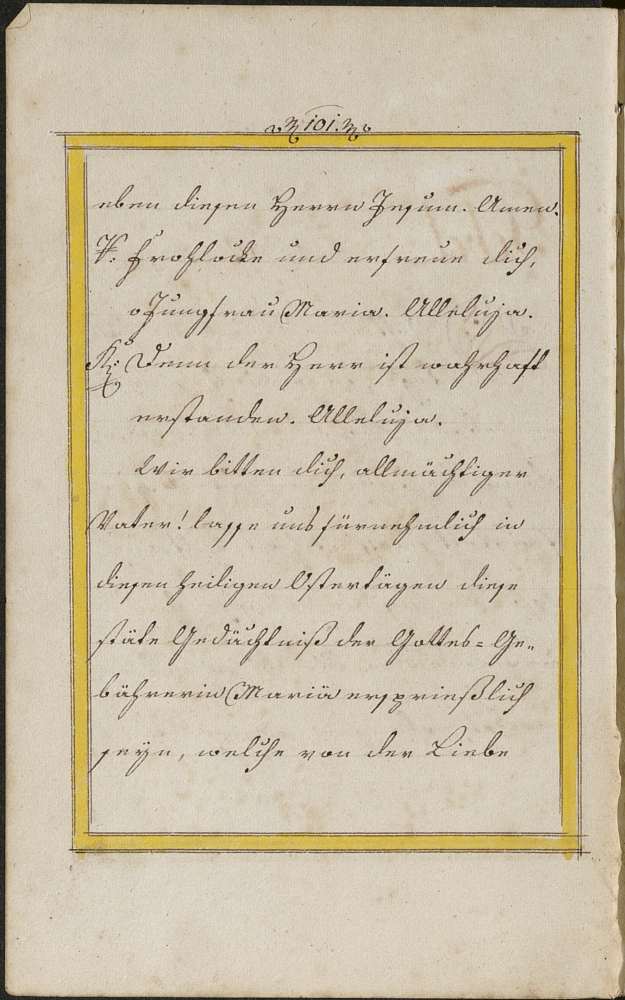 101.
eben diesen Herrn Jesum. Amen.
℣: Frohlocke und erfreue dich,
o Jungfrau Maria. Alleluja.
℟: Denn der Herr ist wahrhaft
erstanden. Alleluja.
Wir bitten dich, allmächtiger
Vater! lasse uns fürnehmlich in
diesen heiligen Ostertägen diese
stäte Gedächtniß der Gottes=Ge„
bährerin Mariä ersprießlich
seyn, welche von der Liebe